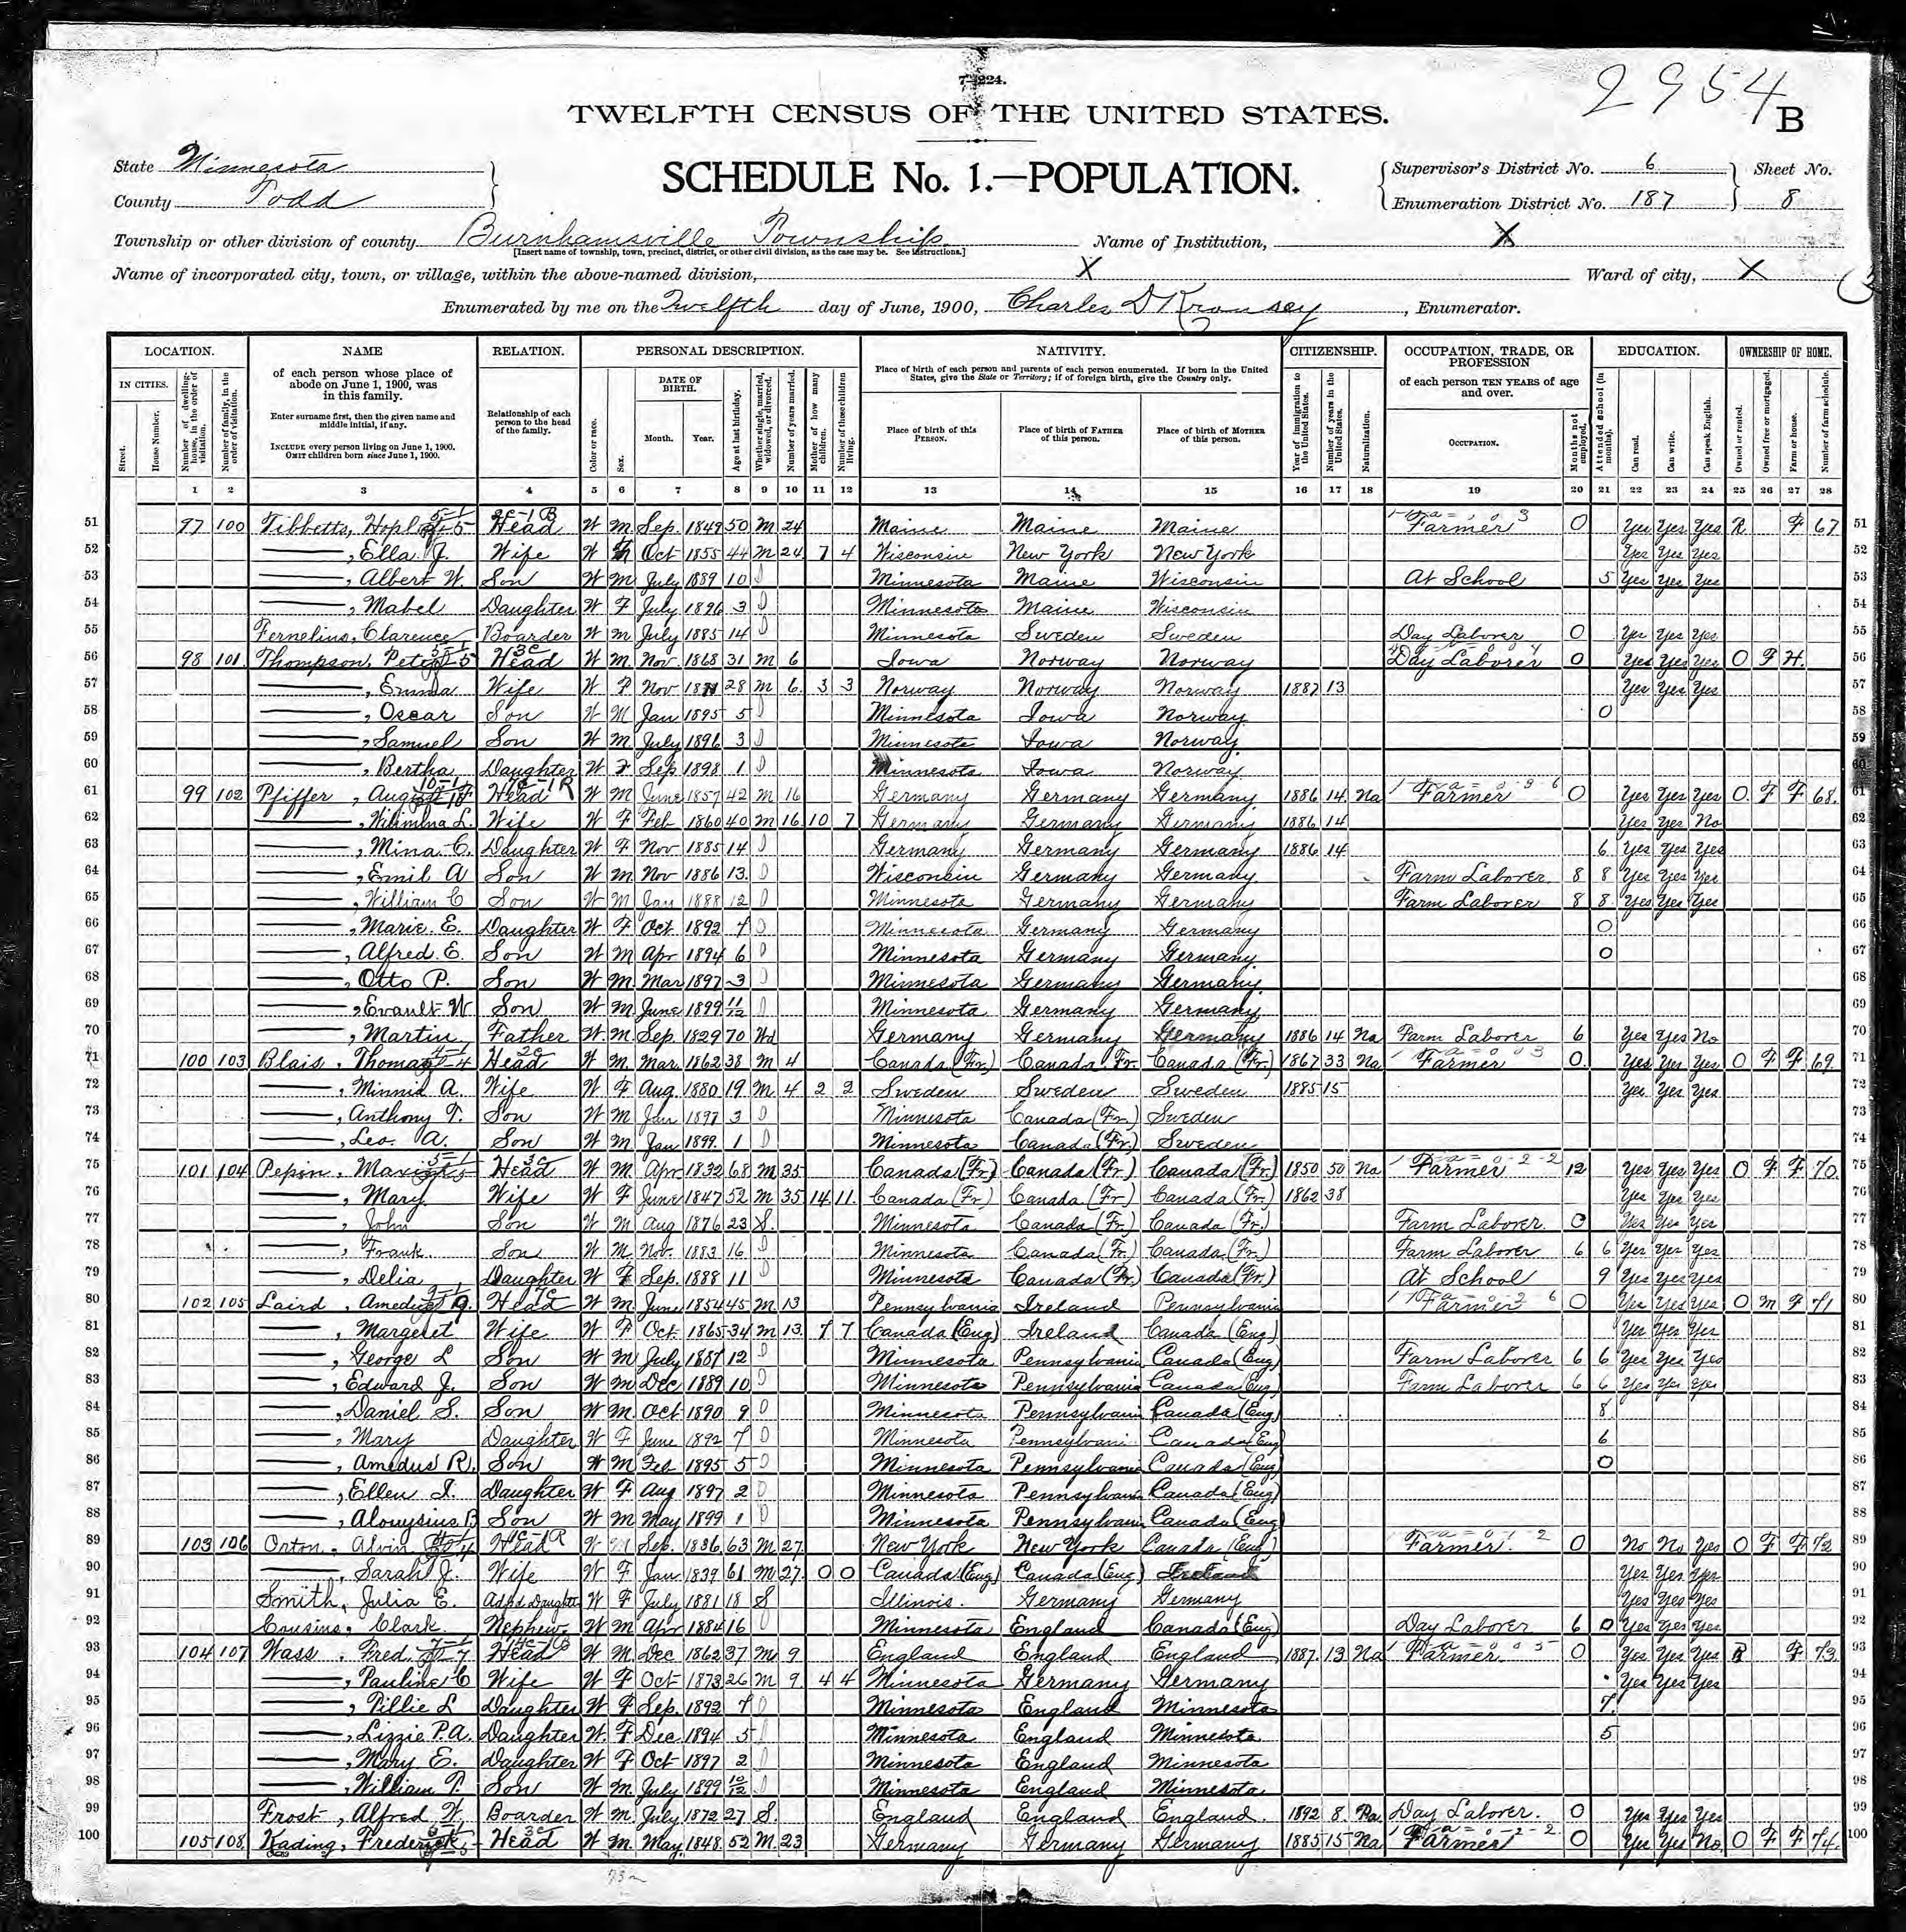 7-224.
2954
B
TWELFTH CENSUS OF THE UNITED STATES.
SCHEDULE No. 1.—POPULATION.
State Minnesota
County Todd
Supervisor's District No. 6
Enumeration District No. 187
Sheet No. 8
Township or other division of county Burnhamsville Township Name of Institution, X
[Insert name of township, town, precinct, district, or other civil division, as the case may be. See instructions.]
Name of incorporated city, town, or village, within the above-named division, X Ward of city, X
Enumerated by me on the Twelfth day of June, 1900, Charles D Kromsey, Enumerator.
LOCATION. NAME RELATION. PERSONAL DESCRIPTION. NATIVITY. CITIZENSHIP. OCCUPATION, TRADE, OR PROFESSION EDUCATION. OWNERSHIP OF HOME.
IN CITIES. Street. House Number. Number of dwelling-house, in the order of visitation. Number of family, in the order of visitation.
of each person whose place of abode on June 1, 1900, was in this family.
Enter surname first, then the given name and middle initial, if any.
INCLUDE every person living on June 1, 1900. OMIT children born since June 1, 1900.
Relationship of each person to the head of the family.
Color or race. Sex. DATE OF BIRTH. Month. Year. Age at last birthday. Whether single, married, widowed, or divorced. Number of years married. Mother of how many children. Number of these children living.
Place of birth of each person and parents of each person enumerated. If born in the United States, give the State or Territory; if of foreign birth, give the Country only.
Place of birth of this PERSON. Place of birth of FATHER of this person. Place of birth of MOTHER of this person.
Year of immigration to the United States. Number of years in the United States. Naturalization.
of each person TEN YEARS of age and over.
OCCUPATION. Months not employed.
Attended school (in months). Can read. Can write. Can speak English.
Owned or rented. Owned free or mortgaged. Farm or house. Number of farm schedule.
1 2 3 4 5 6 7 8 9 10 11 12 13 14 15 16 17 18 19 20 21 22 23 24 25 26 27 28
51 97 100 Tibbetts, Head W M Sep. 1849 50 M 24 Maine Maine Maine Farmer 0 Yes Yes Yes R F 67 51
52 ——, Ella J. Wife W Oct 1855 44 M 24 7 4 Wisconsin New York New York Yes Yes Yes 52
53 ——, Albert W. Son W M July 1889 10 Minnesota Maine Wisconsin At School 5 Yes Yes Yes 53
54 ——, Mabel Daughter W F July 1896 3 Minnesota Maine Wisconsin 54
55 Fernelius, Clarence Boarder W M July 1885 14 Minnesota Sweden Sweden Day Laborer 0 Yes Yes Yes 55
56 98 101 Thompson, Peter Head W M Nov 1868 31 M 6 Iowa Norway Norway Day Laborer 0 Yes Yes Yes O F H. 56
57 ——, Emma Wife W F Nov 28 M 6 3 3 Norway Norway Norway 1887 13 Yes Yes Yes 57
58 ——, Oscar Son W M Jan 1895 5 Minnesota Iowa Norway 0 58
59 ——, Samuel Son W M July 1896 3 Minnesota Iowa Norway 59
60 ——, Bertha Daughter W F Sep 1898 1 Minnesota Iowa Norway 60
61 99 102 Pfiffer, August Head W M June 1857 42 M 16 Germany Germany Germany 1886 14 Na Farmer 0 Yes Yes Yes O. F F 68. 61
62 ——, Wilimina L. Wife W F Feb 1860 40 M 16 10 7 Germany Germany Germany 1886 14 Yes Yes No 62
63 ——, Mina C. Daughter W F Nov 1885 14 Germany Germany Germany 1886 14 6 Yes Yes Yes 63
64 ——, Emil A Son W M Nov 1886 13. Wisconsin Germany Germany Farm Laborer 8 8 Yes Yes Yes 64
65 ——, William C Son W M Jan 1888 12 Minnesota Germany Germany Farm Laborer 8 8 Yes Yes Yes 65
66 ——, Marie. E. Daughter W F Oct 1892 7 Minnesota Germany Germany 0 66
67 ——, Alfred. E. Son W M Apr 1894 6 Minnesota Germany Germany 0 67
68 ——, Otto P. Son W M Mar 1897 3 Minnesota Germany Germany 68
69 ——, Evault W Son W M June 1899 11/12 Minnesota Germany Germany 69
70 ——, Martin Father W M Sep. 1829 70 Wd Germany Germany Germany 1886 14 Na Farm Laborer 6 Yes Yes No 70
71 100 103 Blais, Thomas Head W M Mar 1862 38 M 4 Canada (Fr.) Canada Fr. Canada (Fr.) 1867 33 Na Farmer 0. Yes Yes Yes O F F 69. 71
72 ——, Minnie A. Wife W F Aug 1880 19 M 4 2 2 Sweden Sweden Sweden 1885 15 Yes Yes Yes 72
73 ——, Anthony T. Son W M Jan 1897 3 Minnesota Canada (Fr.) Sweden 73
74 ——, Leo. A. Son W M Jan 1899 1 Minnesota Canada (Fr.) Sweden 74
75 101 104 Pepin, Head W M Apr 1832 68 M 35 Canada (Fr) Canada (Fr) Canada (Fr) 1850 50 Na Farmer 12 Yes Yes Yes O F F 70. 75
76 ——, Mary Wife W F June 1847 52 M 35 14 11. Canada (Fr) Canada (Fr) Canada (Fr) 1862 38 Yes Yes Yes 76
77 ——, John Son W M Aug 1876 23 S. Minnesota Canada (Fr) Canada (Fr.) Farm Laborer 0 Yes Yes Yes 77
78 ——, Frank. Son W M Nov. 1883 16 Minnesota Canada (Fr.) Canada (Fr.) Farm Laborer 6 6 Yes Yes Yes 78
79 ——, Delia Daughter W F Sep. 1888 11 Minnesota Canada (Fr.) Canada (Fr.) At School 9 Yes Yes Yes 79
80 102 105 Laird, Head W M June 1854 45 M 13 Pennsylvania Ireland Pennsylvania Farmer 0 Yes Yes Yes O M F 71 80
81 ——, Margeret Wife W F Oct 1865 34 M 13. 7 7 Canada (Eng) Ireland Canada (Eng) Yes Yes Yes 81
82 ——, George L Son W M July 1887 12 Minnesota Pennsylvania Canada (Eng) Farm Laborer 6 6 Yes Yes Yes 82
83 ——, Edward J. Son W M Dec 1889 10 Minnesota Pennsylvania Canada (Eng) Farm Laborer 6 6 Yes Yes Yes 83
84 ——, Daniel S. Son W M Oct 1890 9 Minnesota Pennsylvania Canada (Eng) 8 84
85 ——, Mary Daughter W F June 1892 7 Minnesota Pennsylvani Canada (Eng) 6 85
86 ——, Amedus R. Son W M Feb 1895 5 Minnesota Pennsylvania Canada (Eng) 0 86
87 ——, Ellen I. Daughter W F Aug 1897 2 Minnesota Pennsylvania Canada (Eng) 87
88 ——, Alouysius B Son W M May 1899 1 Minnesota Pennsylvania Canada (Eng) 88
89 103 106 Orton, Alvin Head W Sep. 1836 63 M 27. New York New York Canada (Eng) Farmer. 0 No No Yes O F F 72 89
90 ——, Sarah J. Wife W F Jan 1839 61 M 27. 0 0 Canada (Eng) Canada (Eng) Ireland Yes Yes Yes 90
91 Smith, Julia E. Adpd Daughter W F July 1881 18 S Illinois. Germany Germany Yes Yes Yes 91
92 Cousins, Clark. Nephew W M Apr 1884 16 Minnesota England Canada (Eng) Day Laborer 6 0 Yes Yes Yes 92
93 104 107 Wass, Fred. Head W M Dec 1862 37 M 9 England England England 1887. 13 Na Farmer 0 Yes Yes Yes R F 73. 93
94 ——, Pauline C Wife W F Oct 1873 26 M 9. 4 4 Minnesota Germany Germany Yes Yes Yes 94
95 ——, Tillie L Daughter W F Sep. 1892 7 Minnesota England Minnesota 7. 95
96 ——, Lizzie P. A. Daughter W. F Dec 1894 5 Minnesota England Minnesota 5 96
97 ——, Mary E. Daughter W F Oct 1897 2 Minnesota England Minnesota 97
98 ——, William T. Son W M July 1899 10/12 Minnesota England Minnesota 98
99 Frost, Alfred W. Boarder W M July 1872 27 S. England England England. 1892 8 Pa Day Laborer. 0 Yes Yes Yes 99
100 105 108 Kading, Frederick Head W M. May 1848 52 M. 23 Germany Germany Germany 1885 15 Na Farmer 0 Yes Yes No. O F F 74. 100